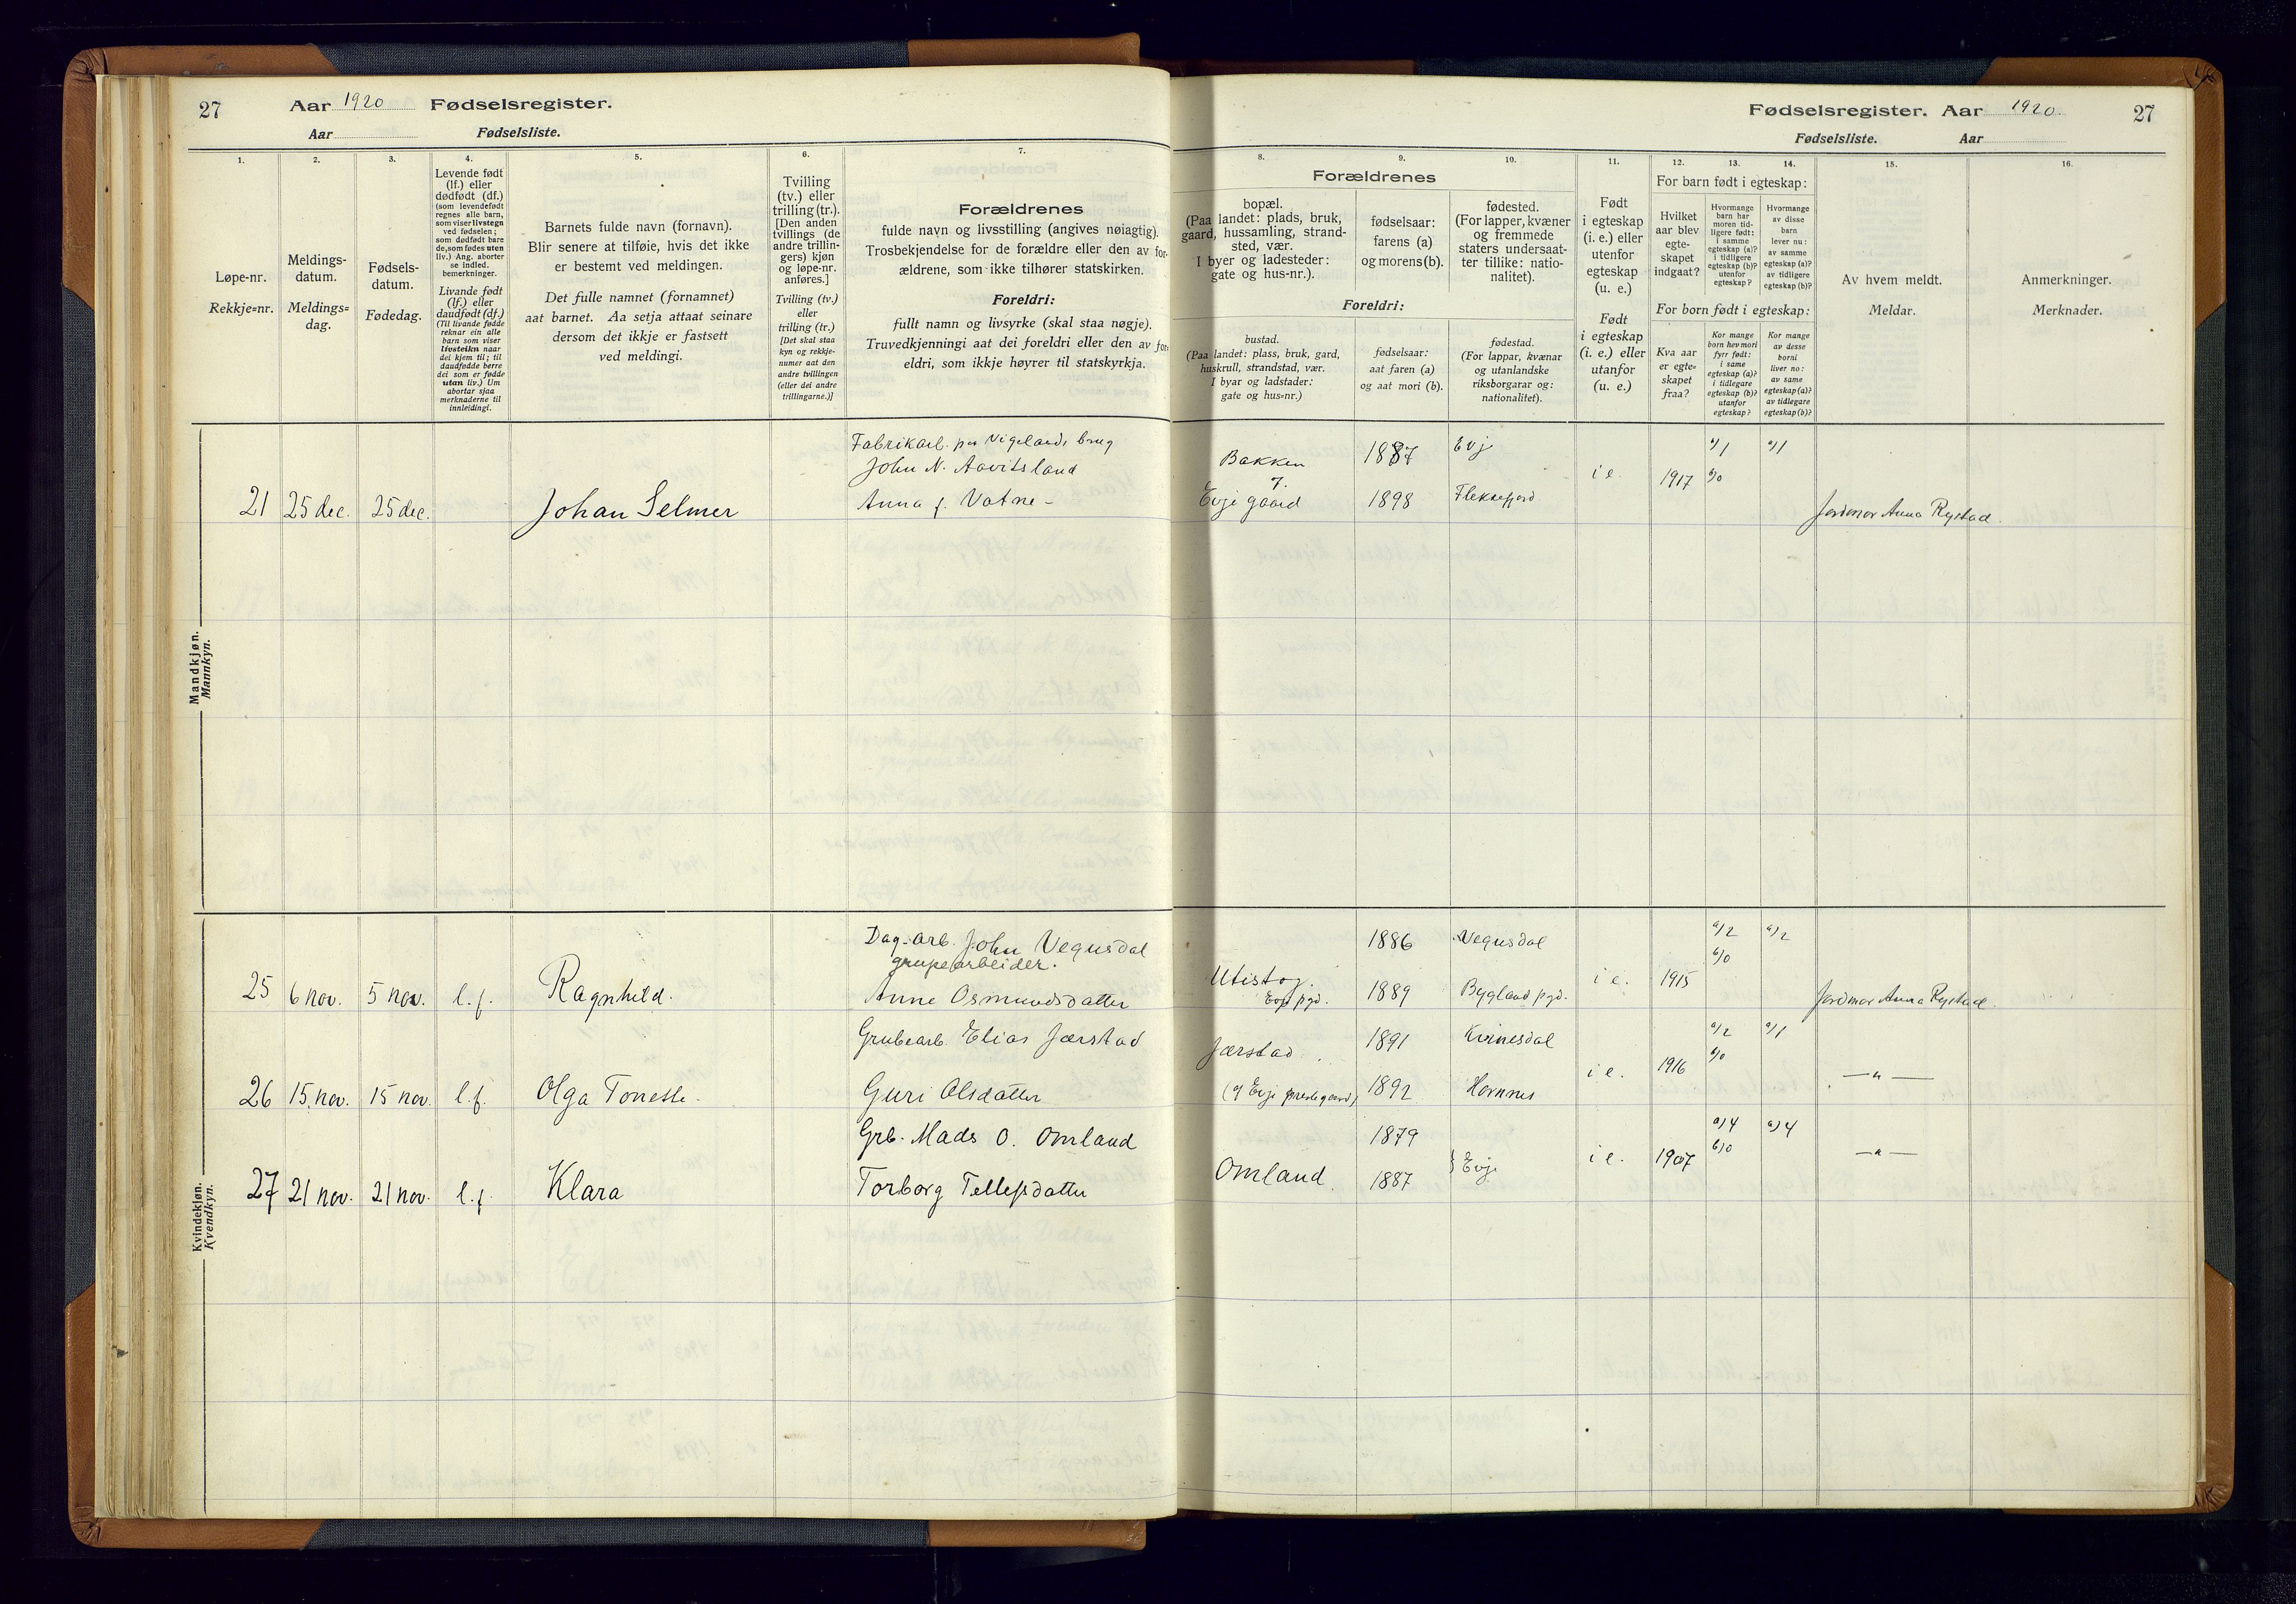 27 Aar 1920 Fødselsregister.
Aar Fødselsliste.
1. 2. 3. 4. 5. 6. 7.
Løpe-nr.
Rekkje=nr.
Meldings-
datum.
Meldings=
dag.
Fødsels-
datum.
Fødedag.
Levende født
(lf.) eller
dødfødt (df.)
(som levendefødt
regnes alle barn,
som viser livstegn
ved fødselen;
som dødfødt bare
de, som fødes uten
liv.) Ang. aborter
se indled.
bemerkninger.
Livande født
(lf.) eller
daudfødt (df.)
(Til livande fødde
reknar ein alle
barn som viser
livsteikn naar
dei kjem til; til
daudfødde berre
dei som er fødde
utan liv.) Um
abortar sjaa
merknaderne til
innleidingi.
Barnets fulde navn (fornavn).
Blir senere at tilføie, hvis det ikke
er bestemt ved meldingen.
Det fulle namnet (fornamnet)
aat barnet. Aa setja attaat seinare
dersom det ikkje er fastsett
ved meldingi.
Tvilling
(tv.) eller
trilling (tr.).
[Den anden
tvillings (de
andre trillin-
gers) kjøn
og løpe-nr.
anføres.]
Tvilling (tv.)
eller
trilling (tr.)
[Det skal staa
kyn og rekkje-
numer aat den
andre tvillingen
(eller dei andre
trillingarne.)]
Forældrenes
fulde navn og livsstilling (angives nøiagtig).
Trosbekjendelse for de forældre eller den av for-
ældrene, som ikke tilhører statskirken.
Foreldri:
fullt namn og livsyrke (skal staa nøgje).
Truvedkjenningi aat dei foreldri eller den av for-
eldri, som ikkje høyrer til statskyrkja.
Mandkjøn.
Mannkyn.
Fabrikarb. paa Vigelands brug
John N. Aavitsland
21 25 dec. 25 dec. Johan Selmer Anna f. Vatne -
Kvindekjøn.
Kvendkyn.
Dag-arb. John Vegusdal
grupearbeider.
25 6 nov. 5 nov. l.f. Ragnhild. Anne Osmundsdatter
Grubearb. Elias Jærstad
26 15 nov. 15 nov. l.f. Olga Tonette. Guri Olsdatter
Grb. Mads O. Omland
27 21 nov. 21 nov. l.f. Klara Torborg Tellefsdatter
Fødselsregister. Aar 1920 27
Fødselsliste. Aar
8. 9. 10. 11. 12. 13. 14. 15. 16.
Forældrenes
bopæl.
(Paa landet: plads, bruk,
gaard, hussamling, strand-
sted, vær.
I byer og ladesteder:
gate og hus-nr.).
fødselsaar:
farens (a)
og morens (b).
fødested.
(For lapper, kvæner
og fremmede
staters undersaat-
ter tillike: natio-
nalitet).
Foreldri:
bustad.
(Paa landet: plass, bruk, gard,
huskrull, strandstad, vær.
I byar og ladstader:
gate og hus=nr.)
fødselsaar:
aat faren (a)
og aat mori (b).
fødestad.
(For lappar, kvænar
og utanlandske
riksborgarar og:
nationalitet).
Født
i egteskap
(i. e.) eller
utenfor
egteskap
(u. e.)
Født
i egteskap
(i. e.) eller
utanfor
(u. e.)
For barn født i egteskap:
Hvilket
aar blev
egte-
skapet
indgaat?
Hvormange
barn har
moren tid-
ligere født:
i samme
egteskap (a)?
i tidligere
egteskap (b)?
utenfor
egteskap?
Hvormange
av disse
barn
lever nu:
av samme
egteskap (a)?
av tidligere
egteskap (b)?
For born født i egteskap:
Kva aar
er egte=
skapet
fraa?
Kor mange
born hev mori
fyrr født:
i same
egteskap (a)?
i tidlegare
egteskap (b)?
utanfor
egteskap?
Kor mange
av desse
borni
liver no:
av same
egteskap (a)?
av tidlegare
egteskap (b)?
Av hvem meldt.
Meldar.
Anmerkninger.
Merknader.
Bakken 1887 Evj a/1 a/1
i e. 1917 b/0
Evje gaard 1898 Flekkefjord Jordmor Anna Rystad.
1886 Vegusdal a/2 a/2
Utistog. i e. 1915 b/0
Evje pgd. 1889 Bygland pgd. Jordmor Anna Rystad.
Jærstad. 1891 Kvinesdal a/2 a/1
i e. 1916 b/0
(af Evje prestegaard) 1892 Hornnes —"—
1879 a/4 a/4
Omland. } Evje i e. 1907 b/0 —"—
1887